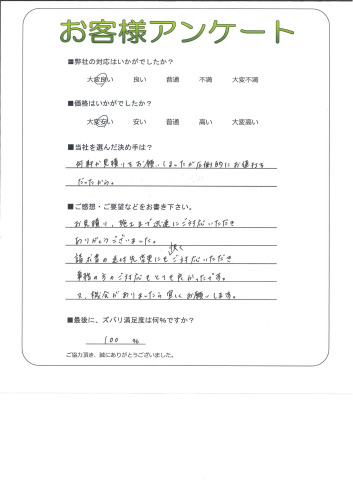 お客様アンケート
■弊社の対応はいかがでしたか？
大変良い 良い 普通 不満 大変不満
■価格はいかがでしたか？
大変安い 安い 普通 高い 大変高い
■当社を選んだ決め手は？
何軒か見積りをお願いしましたが圧倒的にお値打ち
だったから。
■ご感想・ご要望などをお書き下さい。
お見積り、施工まで迅速にご対応いただき
ありがとうございました。
請求書の送付先変更にも快くご対応いただき
事務の方のご対応もとても良かったです。
又、機会がありましたら宜しくお願いします。
■最後に、ズバリ満足度は何％ですか？
100 %
ご協力頂き、誠にありがとうございました。